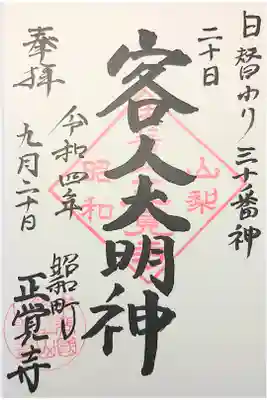 日替わり三十番神
二十日
客人大明神
奉拝
令和四年
九月二十日
昭和町
正覚寺
山梨
昭和